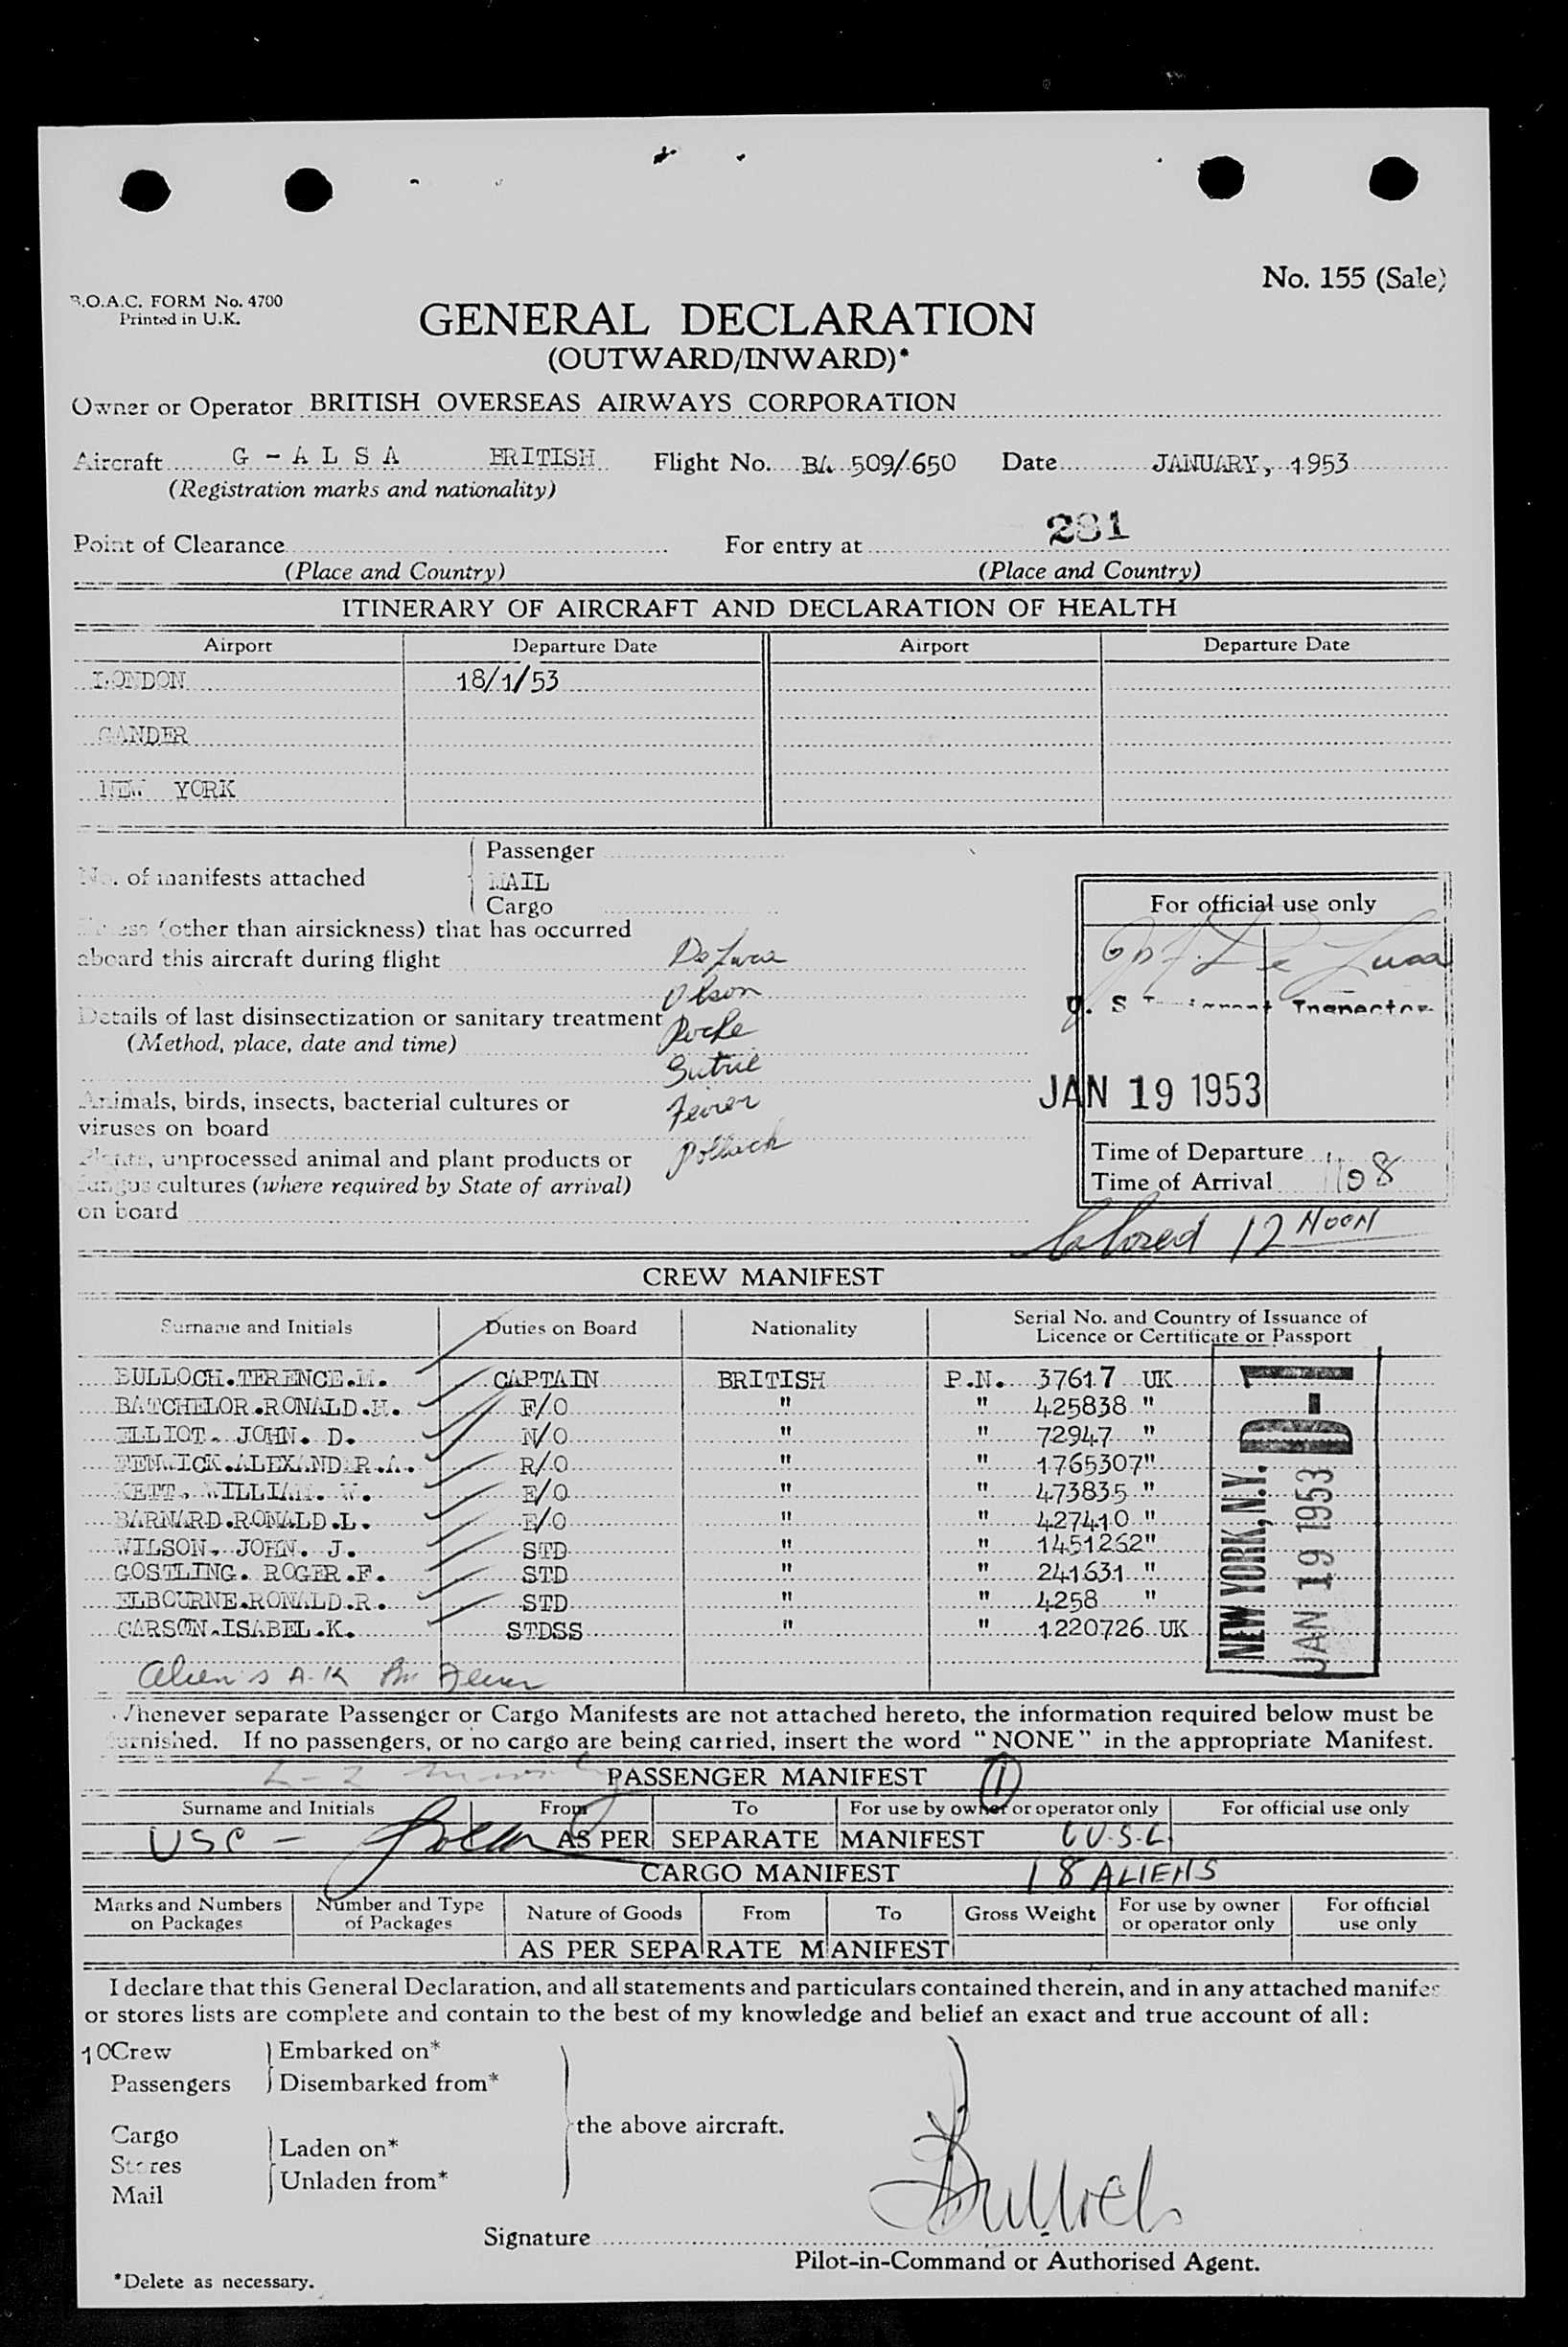 No. 155 (Sale)
B.O.A.C. FORM No. 4700
Printed in U.K.
GENERAL DECLARATION
(OUTWARD/INWARD)*
Owner or Operator BRITISH OVERSEAS AIRWAYS CORPORATION
Aircraft G - A L S A BRITISH Flight No. BA 509/650 Date JANUARY, 1953
(Registration marks and nationality)
281
Point of Clearance For entry at
(Place and Country) (Place and Country)
ITINERARY OF AIRCRAFT AND DECLARATION OF HEALTH
Airport Departure Date Airport Departure Date
LONDON 18/1/53
GANDER
NEW YORK
Passenger
No. of manifests attached MAIL
Cargo
For official use only
Illness (other than airsickness) that has occurred
aboard this aircraft during flight DeLuca
De Luca
Olson
U. S. Immigrant Inspector
Details of last disinsectization or sanitary treatment
(Method, place, date and time) Roche
JAN 19 1953
Animals, birds, insects, bacterial cultures or
viruses on board
Plants, unprocessed animal and plant products or Pollack
fungus cultures (where required by State of arrival)
on board
Time of Departure
Time of Arrival 1108
12 NOON
CREW MANIFEST
Surname and Initials Duties on Board Nationality Serial No. and Country of Issuance of
Licence or Certificate or Passport
BULLOCH.TERENCE.M. CAPTAIN BRITISH P.N. 37617 UK
BATCHELOR.RONALD.H. F/O " " 425838 "
ELLIOT. JOHN. D. N/O " " 72947 "
FENWICK.ALEXANDER.A. R/O " " 1765307"
KETT. WILLIAM. W. E/O " " 473835 "
BARNARD.RONALD.L. E/O " " 427410 "
WILSON. JOHN. J. STD " " 1451262"
GOSTLING. ROGER.F. STD " " 241631 "
ELBOURNE.RONALD.R. STD " " 4258 "
CARSON.ISABEL.K. STDSS " " 1220726 UK
NEW YORK, N.Y. D-1
JAN 19 1953
Whenever separate Passenger or Cargo Manifests are not attached hereto, the information required below must be
furnished. If no passengers, or no cargo are being carried, insert the word "NONE" in the appropriate Manifest.
PASSENGER MANIFEST 1
Surname and Initials From To For use by owner or operator only For official use only
USC - AS PER SEPARATE MANIFEST U.S.C.
CARGO MANIFEST 18 ALIENS
Marks and Numbers on Packages Number and Type of Packages Nature of Goods From To Gross Weight For use by owner or operator only For official use only
AS PER SEPARATE MANIFEST
I declare that this General Declaration, and all statements and particulars contained therein, and in any attached manifes
or stores lists are complete and contain to the best of my knowledge and belief an exact and true account of all:
10Crew Embarked on*
Passengers Disembarked from*
the above aircraft.
Cargo
Stores Laden on*
Mail Unladen from*
Bulloch
Signature
Pilot-in-Command or Authorised Agent.
*Delete as necessary.